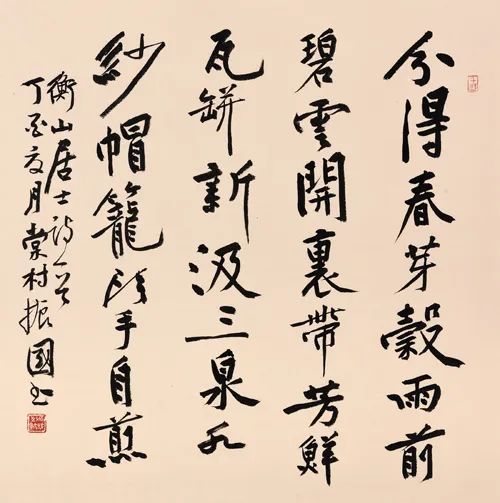 分得春芽穀雨前
碧雲開裏帶芳鮮
瓦缾新汲三泉水
紗帽籠頭手自煎
衡山居士詩一首
丁酉夏月棠村振國書